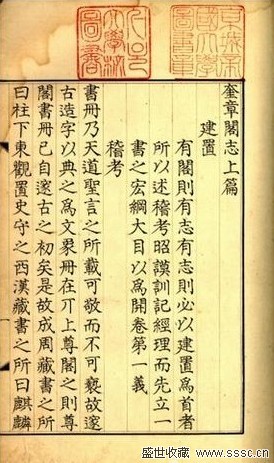 京城帝
國大學
圖書章
大學校
圖書
奎章閣志上篇
建置
有閣則有志有志則必以建置為首者
所以述稽考昭謨訓記經理而先立一
書之宏綱大目以為開卷第一義
稽考
書冊乃天道聖言之所載可敬而不可褻故邃
古造字以典之為文彖冊在丌上尊閣之則尊
閣書冊已自邃古之初矣是故成周藏書之所
曰柱下東觀置史守之西漢藏書之所曰麒麟
盛世收藏
www.sssc.cn